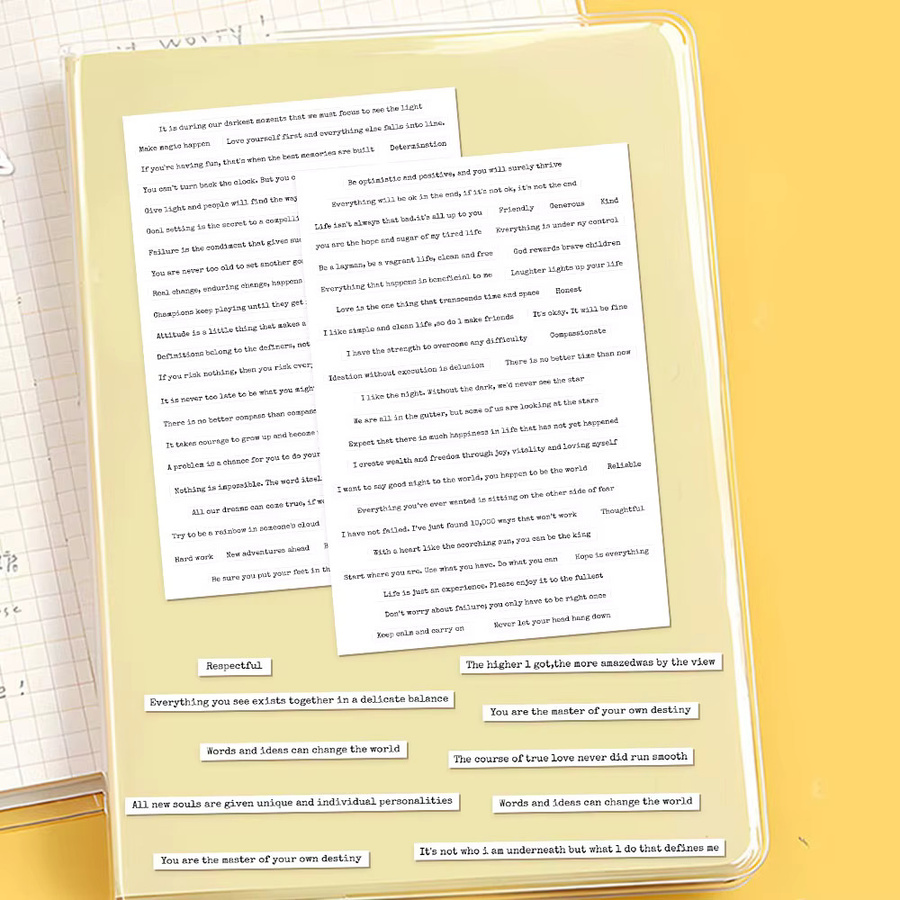 it worry !
It is during our darkest moments that we must focus to see the light
Make magic happen Love yourself first and everything else falls into line.
If you're having fun, that's when the best memories are built Determination
You can't turn back the clock. But you c
Give light and people will find the way
Goal setting is the secret to a compelli
Failure is the condiment that gives suc
You are never too old to set another go
Real change, enduring change, happens
Champions keep playing until they get
Attitude is a little thing that makes a
Definitions belong to the definers, not
If you risk nothing, then you risk ever
It is never too late to be what you migh
There is no better compass than compass
It takes courage to grow up and become
A problem is a chance for you to do your
Nothing is impossible. The word itsel
All our dreams can come true, if w
Try to be a rainbow in someone's cloud
Hard work New adventures ahead B
Be sure you put your feet in th
Be optimistic and positive, and you will surely thrive
Everything will be ok in the end, if it's not ok, it's not the end
Life isn't always that bad.it's all up to you Friendly Generous Kind
you are the hope and sugar of my tired life Everything is under my control
Be a layman, be a vagrant life, clean and free God rewards brave children
Everything that happens is beneficial to me Laughter lights up your life
Love is the one thing that transcends time and space Honest
I like simple and clean life ,so do l make friends It's okay. It will be fine
I have the strength to overcome any difficulty Compassionate
Ideation without execution is delusion There is no better time than now
I like the night. Without the dark, we'd never see the star
We are all in the gutter, but some of us are looking at the stars
Expect that there is much happiness in life that has not yet happened
I create wealth and freedom through joy, vitality and loving myself
I want to say good night to the world, you happen to be the world Reliable
Everything you've ever wanted is sitting on the other side of fear
I have not failed. I've just found 10,000 ways that won't work Thoughtful
With a heart like the scorching sun, you can be the king
Start where you are. Use what you have. Do what you can Hope is everything
Life is just an experience. Please enjoy it to the fullest
Don't worry about failure; you only have to be right once
Keep calm and carry on Never let your head hang down
Respectful
The higher l got,the more amazedwas by the view
Everything you see exists together in a delicate balance
You are the master of your own destiny
Words and ideas can change the world
The course of true love never did run smooth
All new souls are given unique and individual personalities
Words and ideas can change the world
You are the master of your own destiny
It's not who i am underneath but what l do that defines me